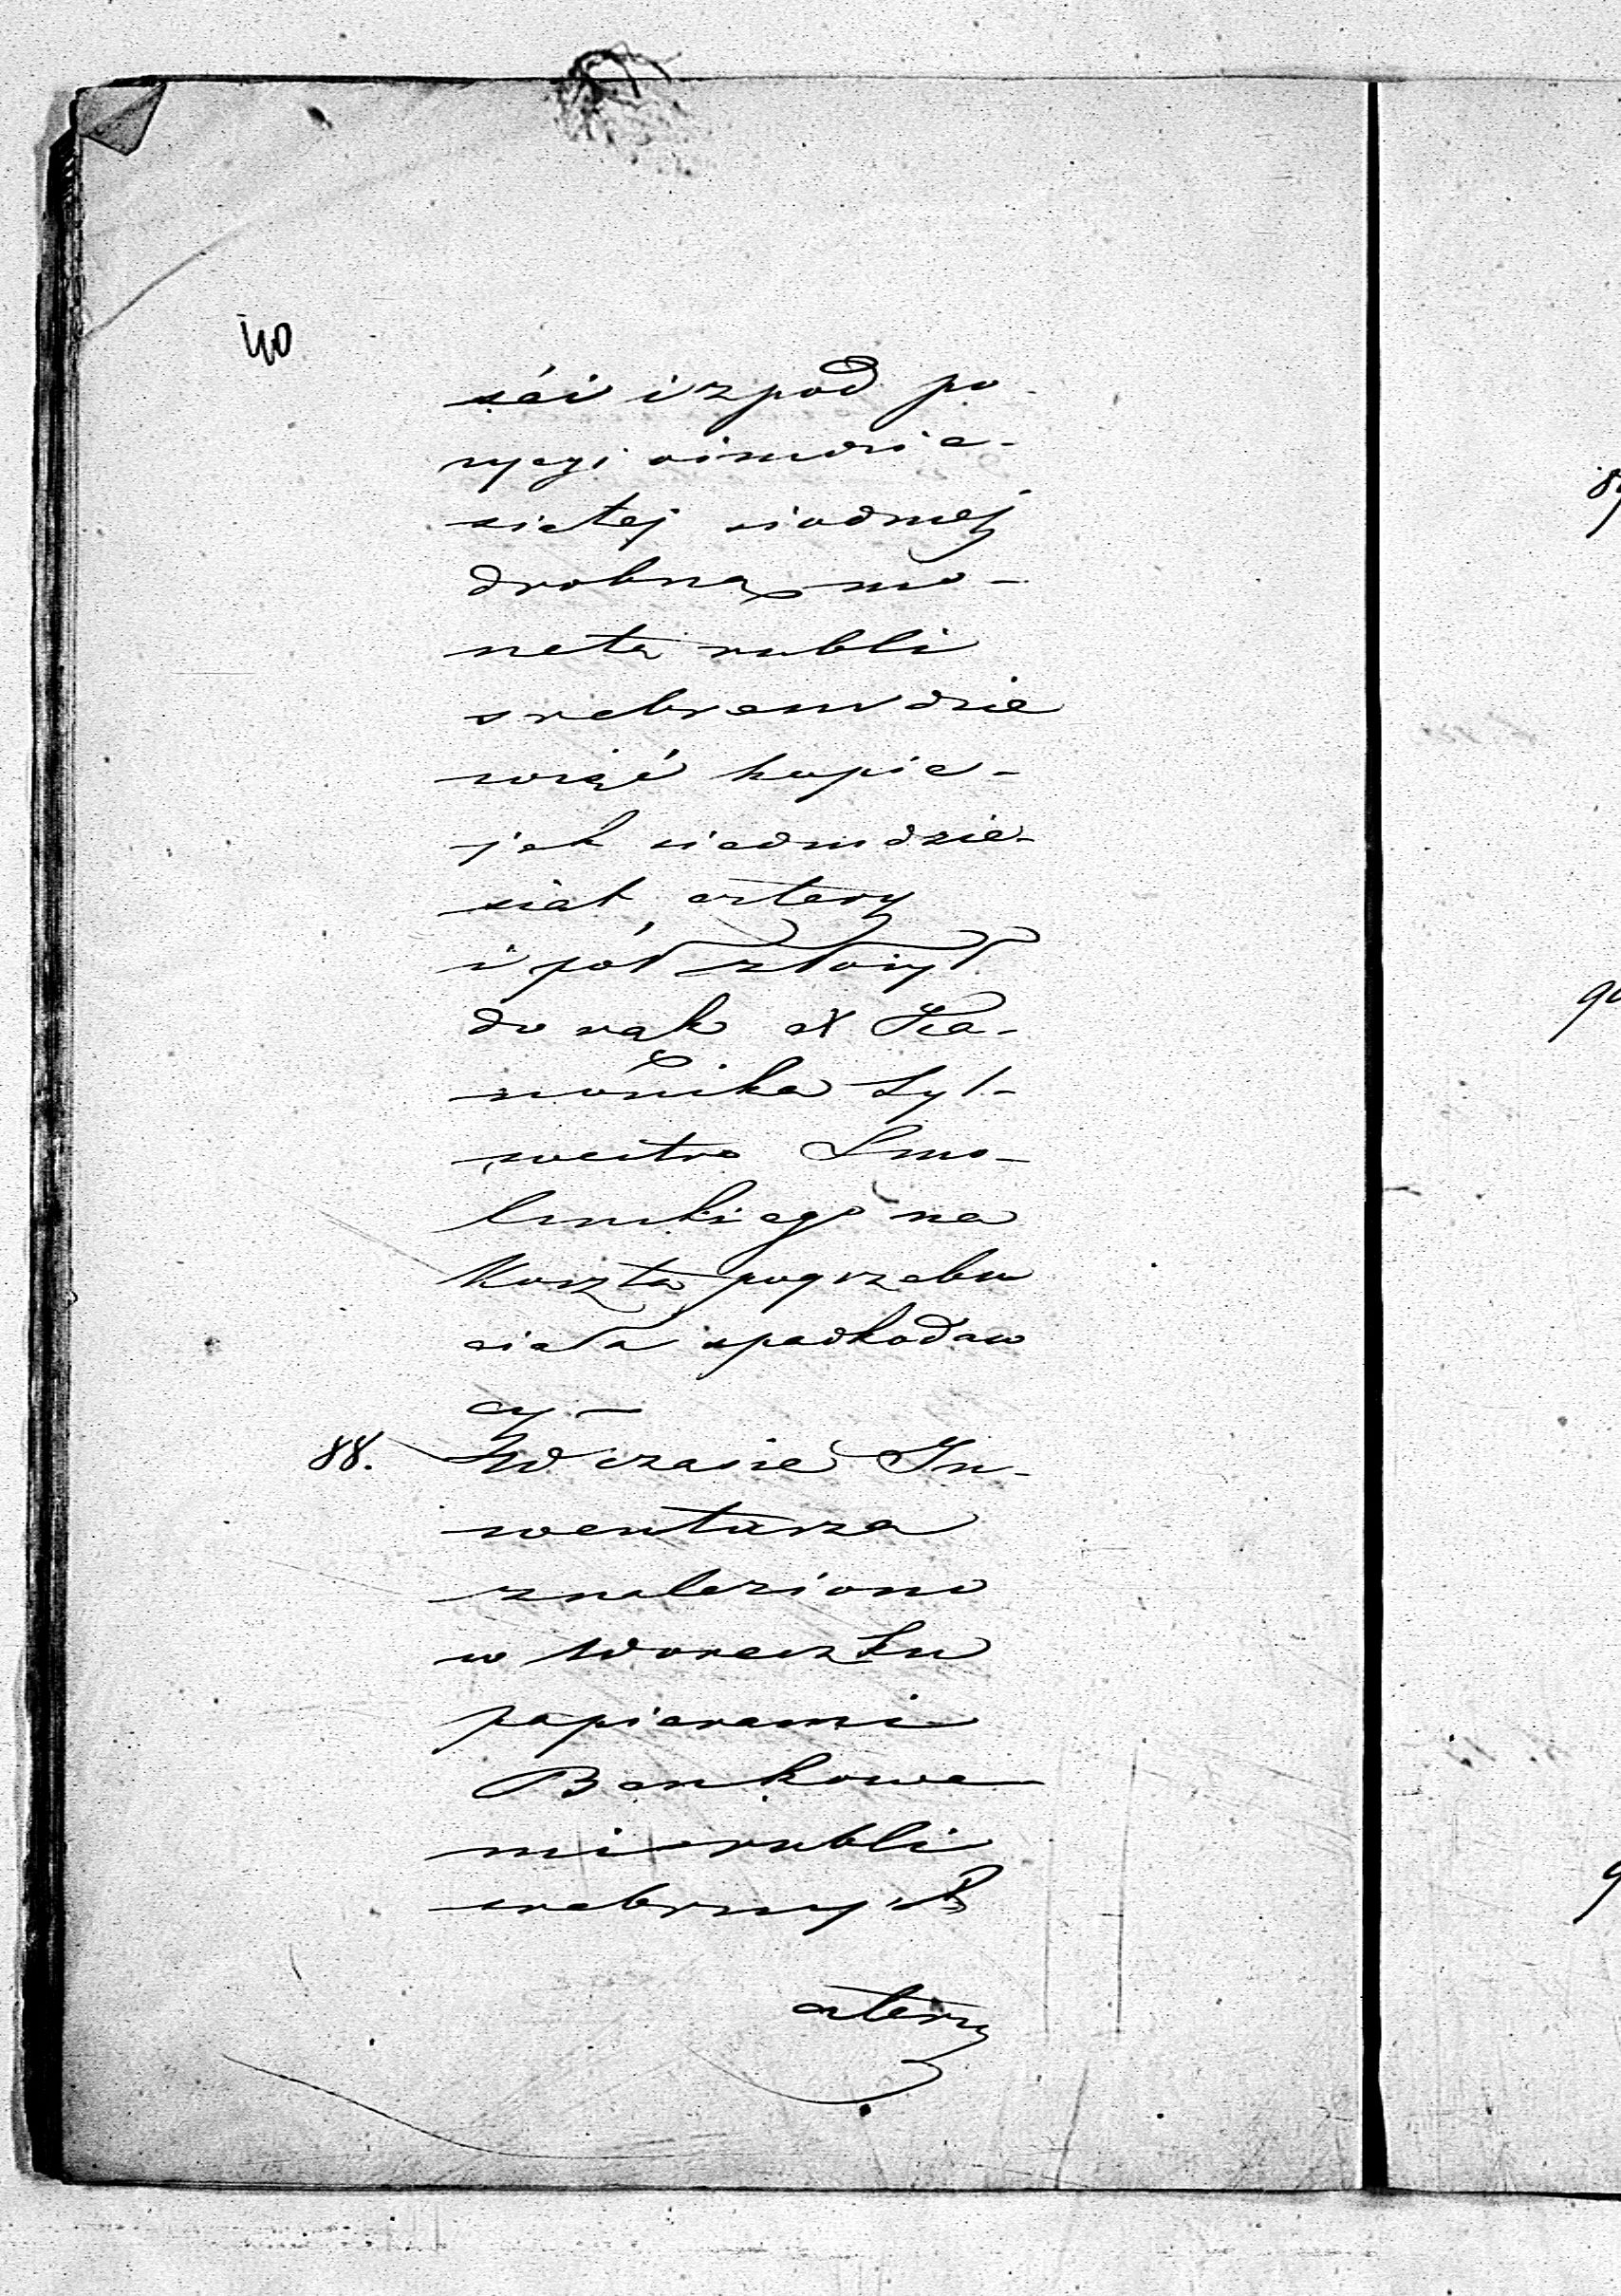 40
ści i z pod po-
zycyi ośmdzie-
siątej siódmej
drobną mo-
netą rubli
srebrem dzie
więć kopie-
jek siedmdzie-
siąt cztery
i pół złożył
do rąk X Ka-
nonika Syl-
westra Smo-
leńskiego na
Koszta pogrzebu
ciała spadkodaw
cy —
88. W czasie In-
wentarza
znaleziono
w woreczku
papierami
Bankowe-
mi rubli
srebrnych
cztery